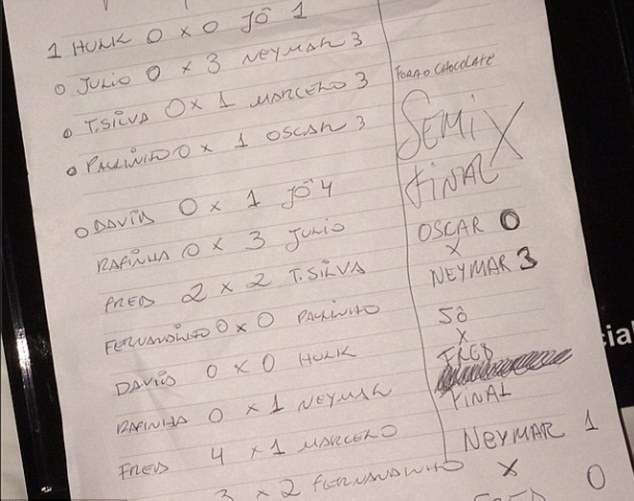 1 HULK 0 X 0 JÔ 1
0 JULIO 0 X 3 NEYMAR 3
0 T.SILVA 0 X 1 MARCELO 3
0 PAULINHO 0 X 1 OSCAR 3
0 DAVID 0 X 1 JÔ 4
RAFINHA 0 X 3 JULIO
FRED 2 X 2 T.SILVA
FERNANDINHO 0 X 0 PAULINHO
DAVID 0 X 0 HULK
RAFINHA 0 X 1 NEYMAR
FRED 4 X 1 MARCELO
3 X 2 FERNANDINHO
CHOCOLATE
SEMI X
FINAL
OSCAR 0
X
NEYMAR 3
JÔ
X
FRED
FINAL
NEYMAR 1
X
0
cia